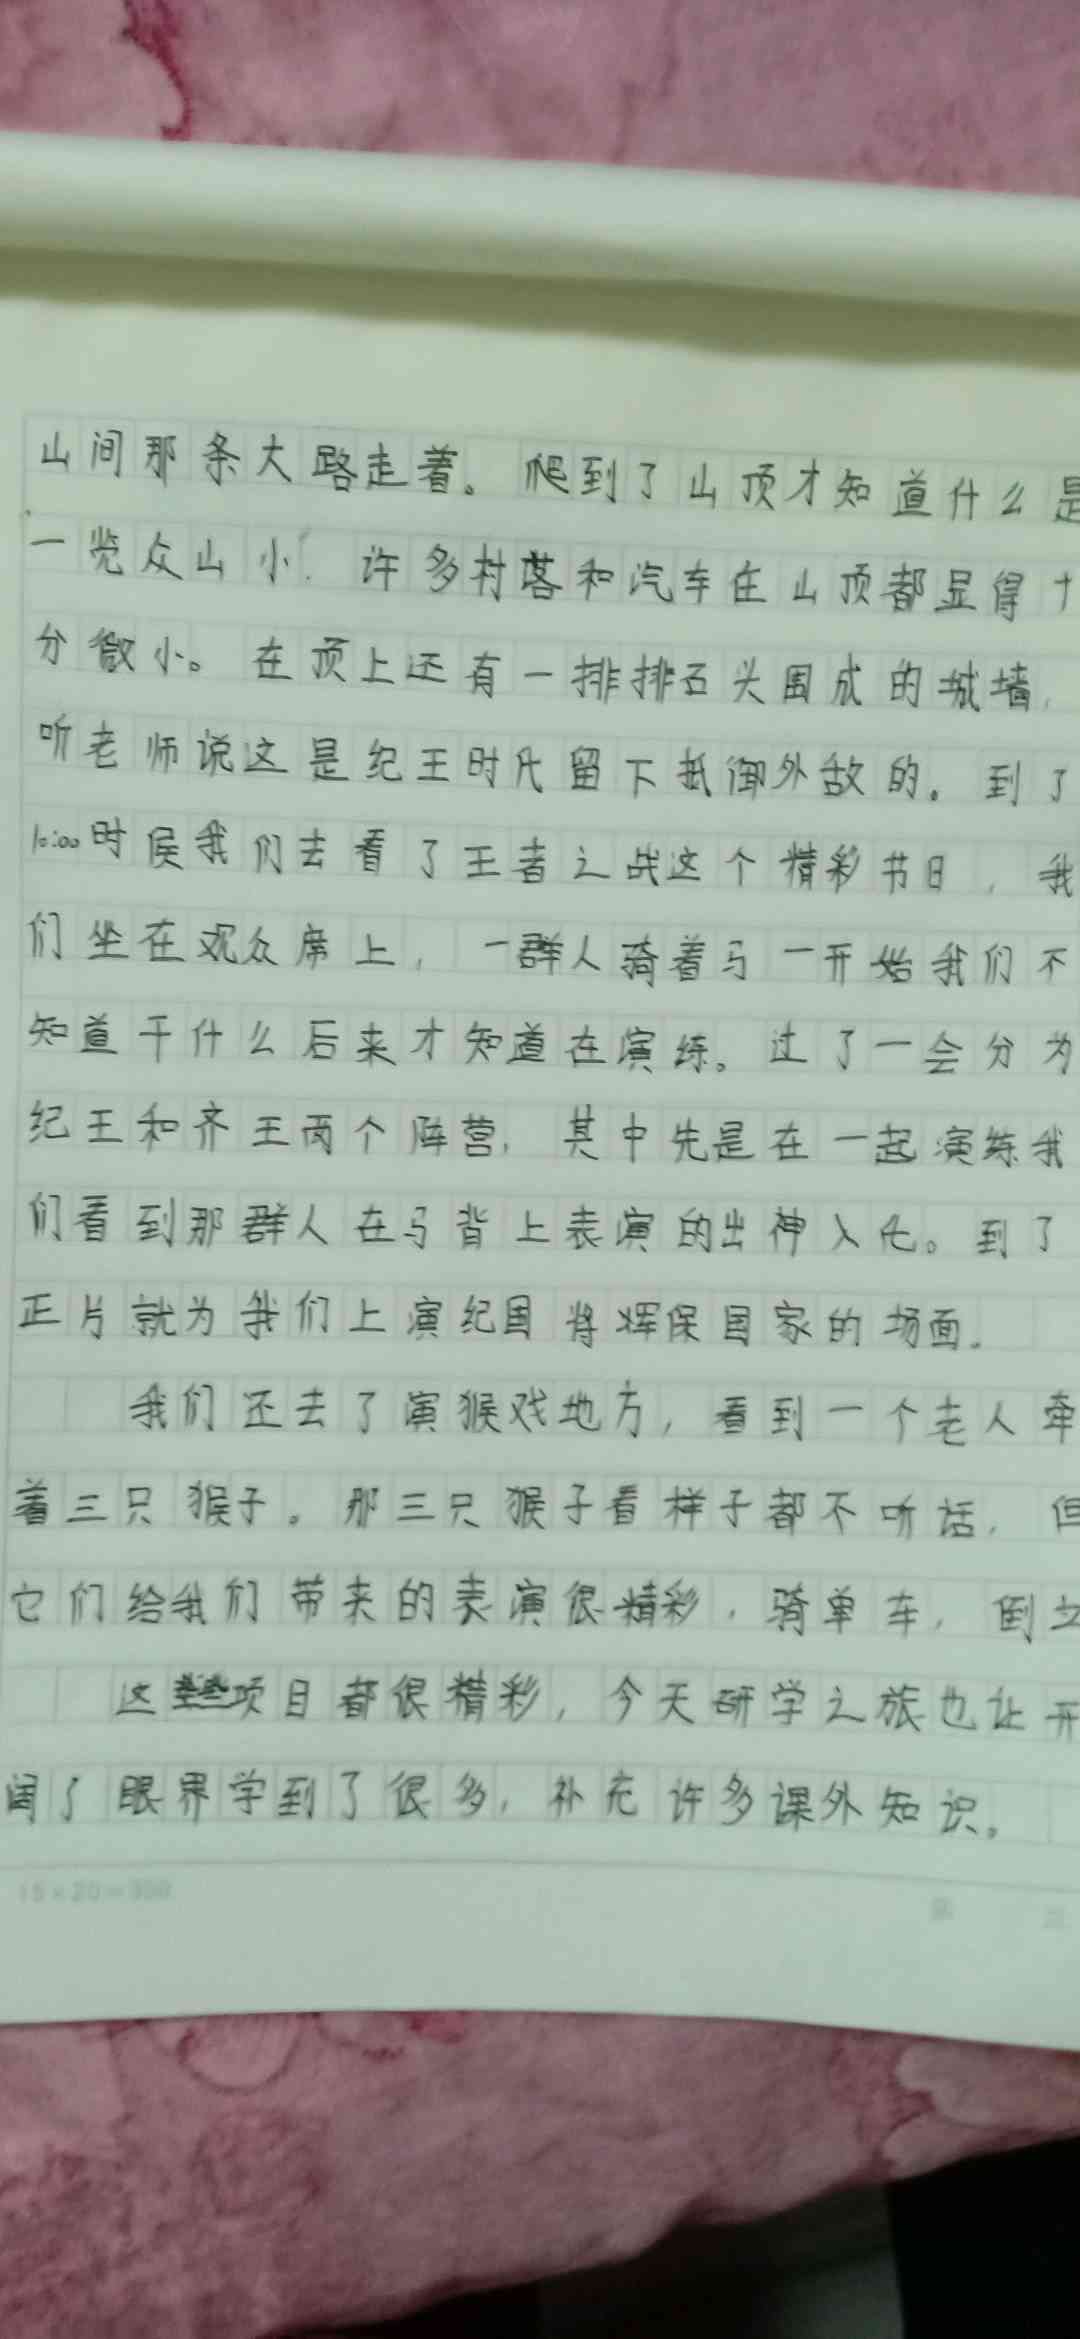 山间那条大路走着。爬到了山顶才知道什么是
一览众山小．许多村落和汽车在山顶都显得十
分微小。在顶上还有一排排石头围成的城墙，
听老师说这是纪王时代留下抵御外敌的。到了
10:00时侯我们去看了王者之战这个精彩节日，我
们坐在观众席上，一群人骑着马一开始我们不
知道干什么后来才知道在演练。过了一会分为
纪王和齐王两个阵营，其中先是在一起演练我
们看到那群人在马背上表演的出神入化。到了
正片就为我们上演纪国将 保国家的场面。
我们还去了演猴戏地方，看到一个老人牵
着三只猴子。那三只猴子看样子都不听话，但
它们给我们带来的表演很精彩，骑单车，倒立
这 项目都很精彩，今天研学之旅也让开
阔了眼界学到了很多，补充许多课外知识。
15×20=300